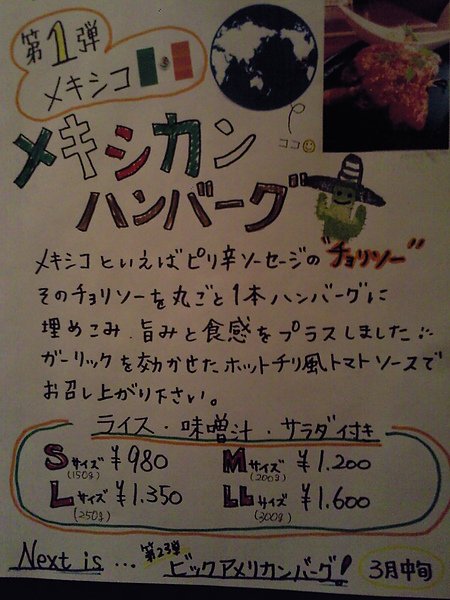 第1弾
メキシコ
ココ
メキシカン
ハンバーグ
メキシコといえばピリ辛ソーセージの"チョリソー"
そのチョリソーを丸ごと1本ハンバーグに
埋めこみ、旨みと食感をプラスしました
ガーリックを効かせたホットチリ風トマトソースで
お召し上がり下さい。
ライス・味噌汁・サラダ付き
Sサイズ ¥980 Mサイズ ¥1.200
(150g) (200g)
Lサイズ ¥1.350 LLサイズ ¥1.600
(250g) (300g)
Next is … 第2弾 ビックアメリカンバーグ! 3月中旬